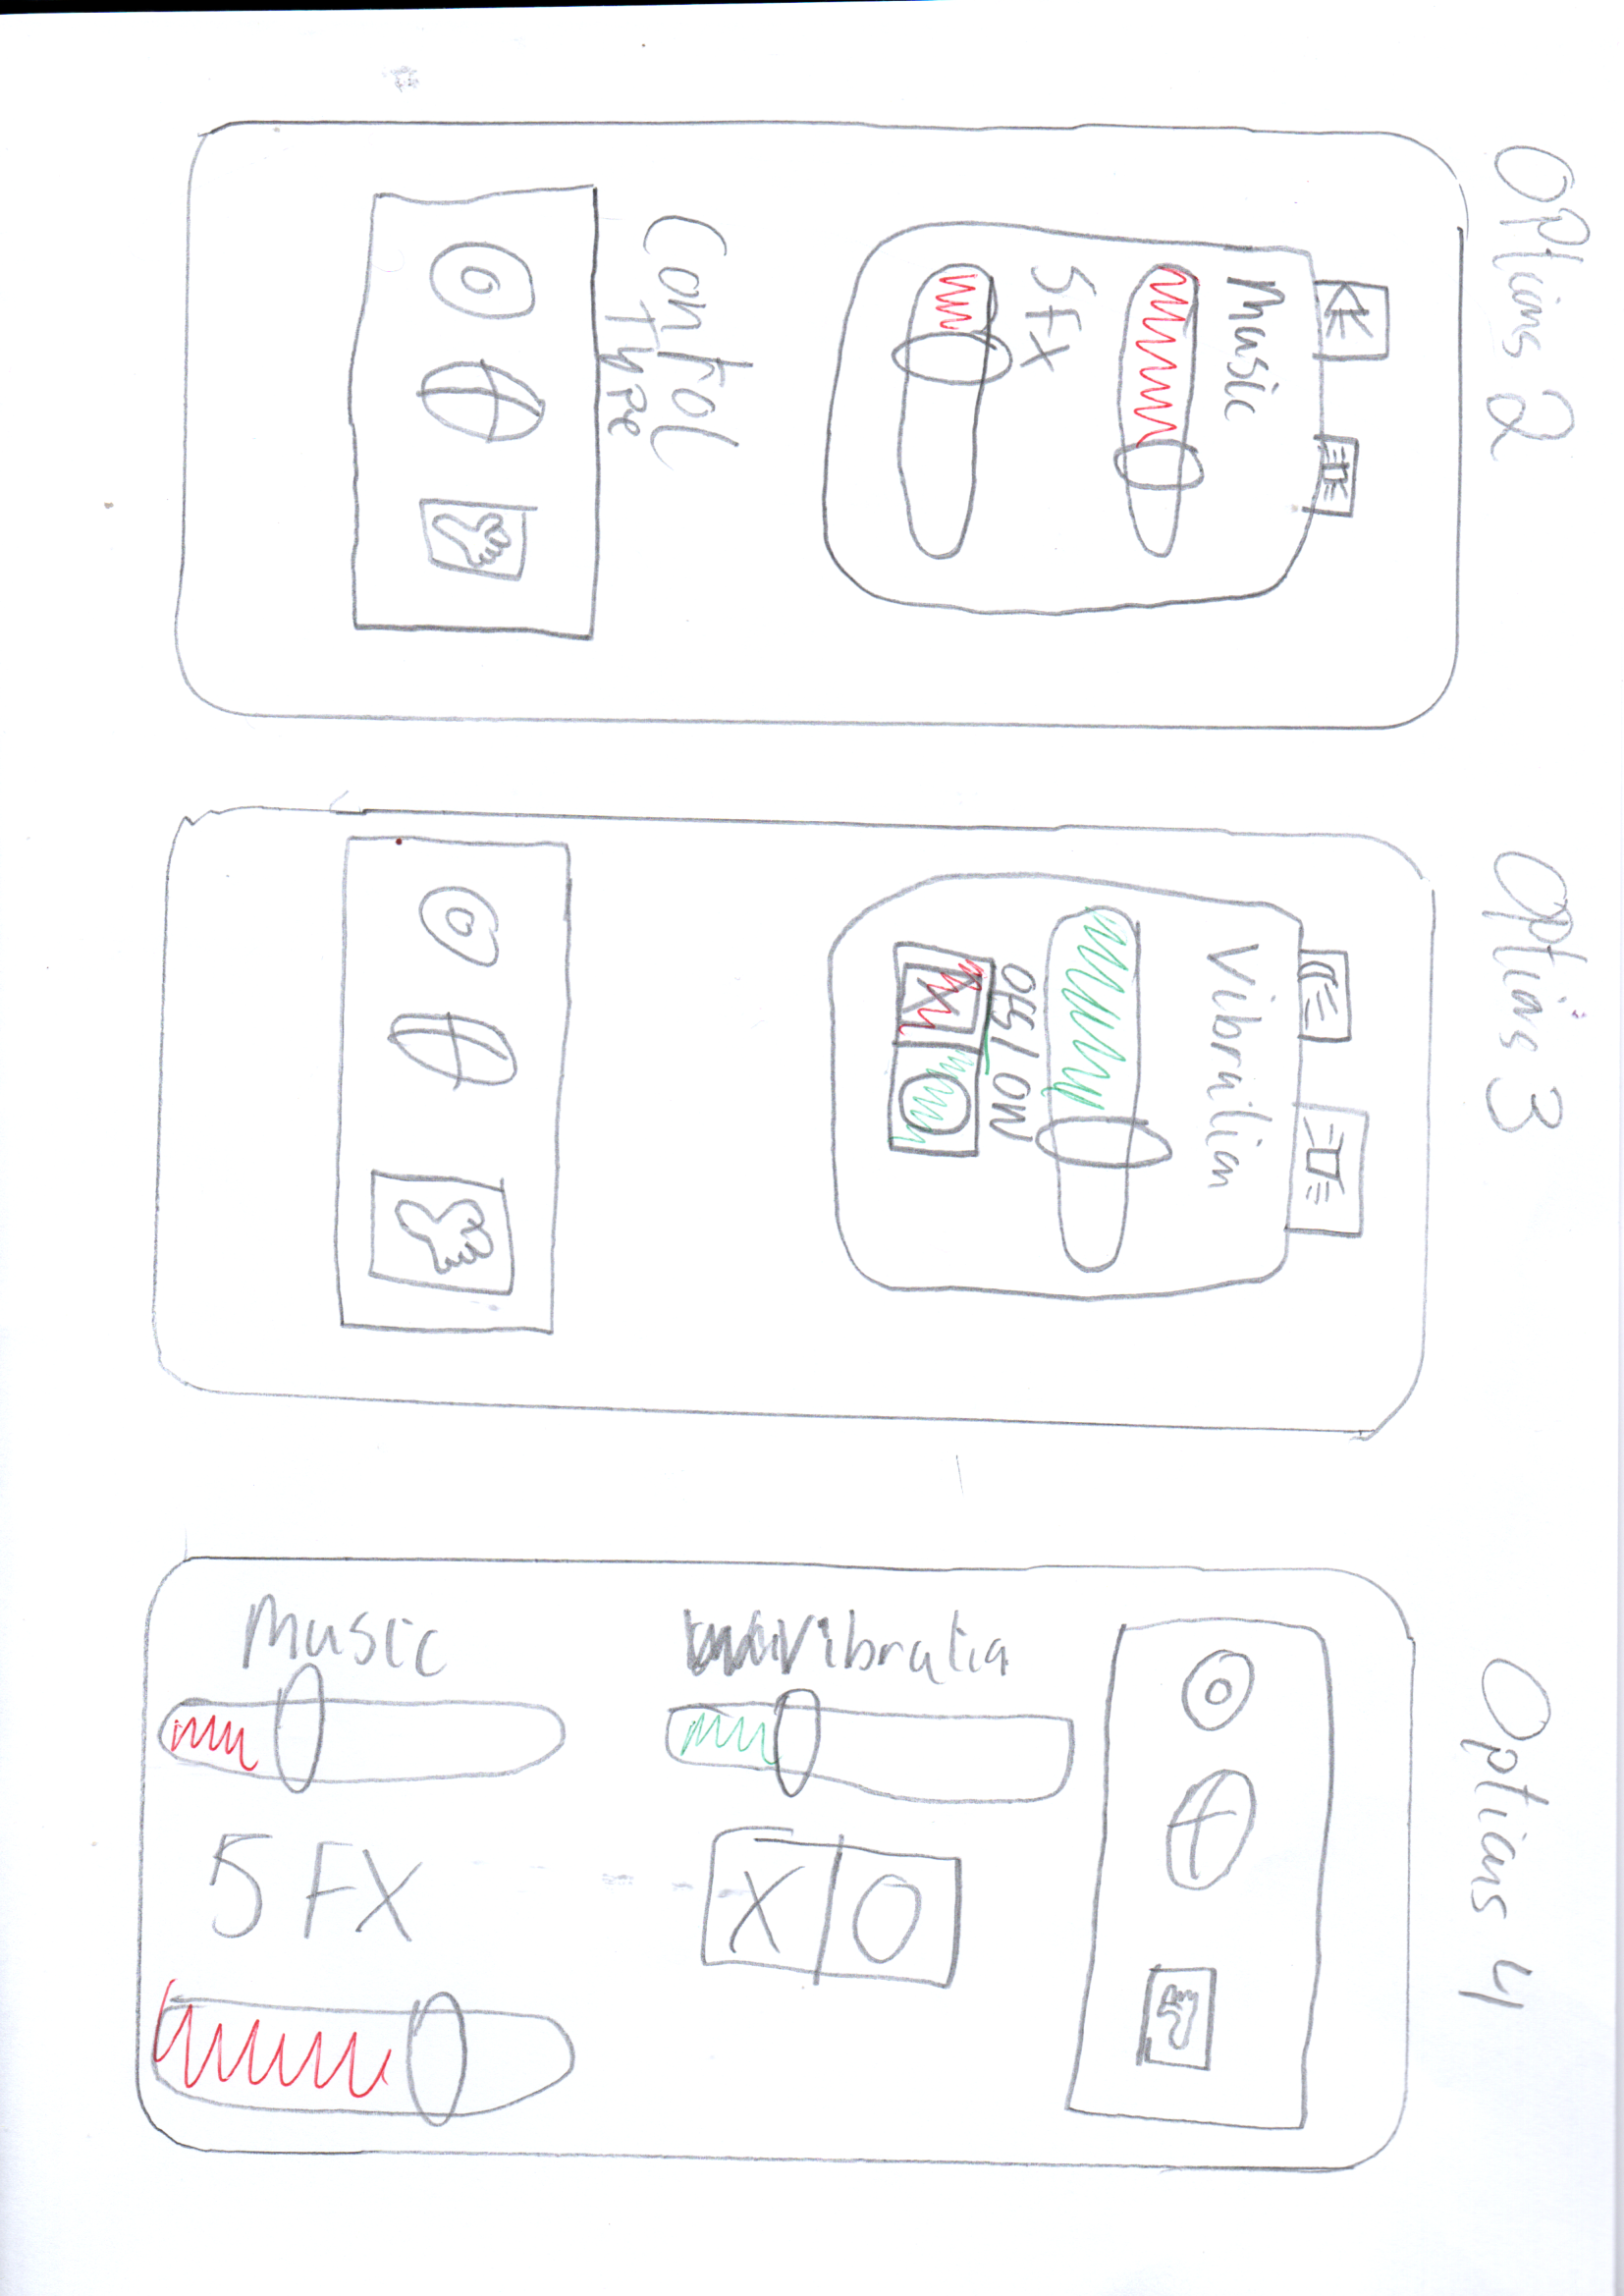 Options 2
Music
SFX
Control
Type
Options 3
Vibration
Options 4
Music
SFX
Vibratio
X O